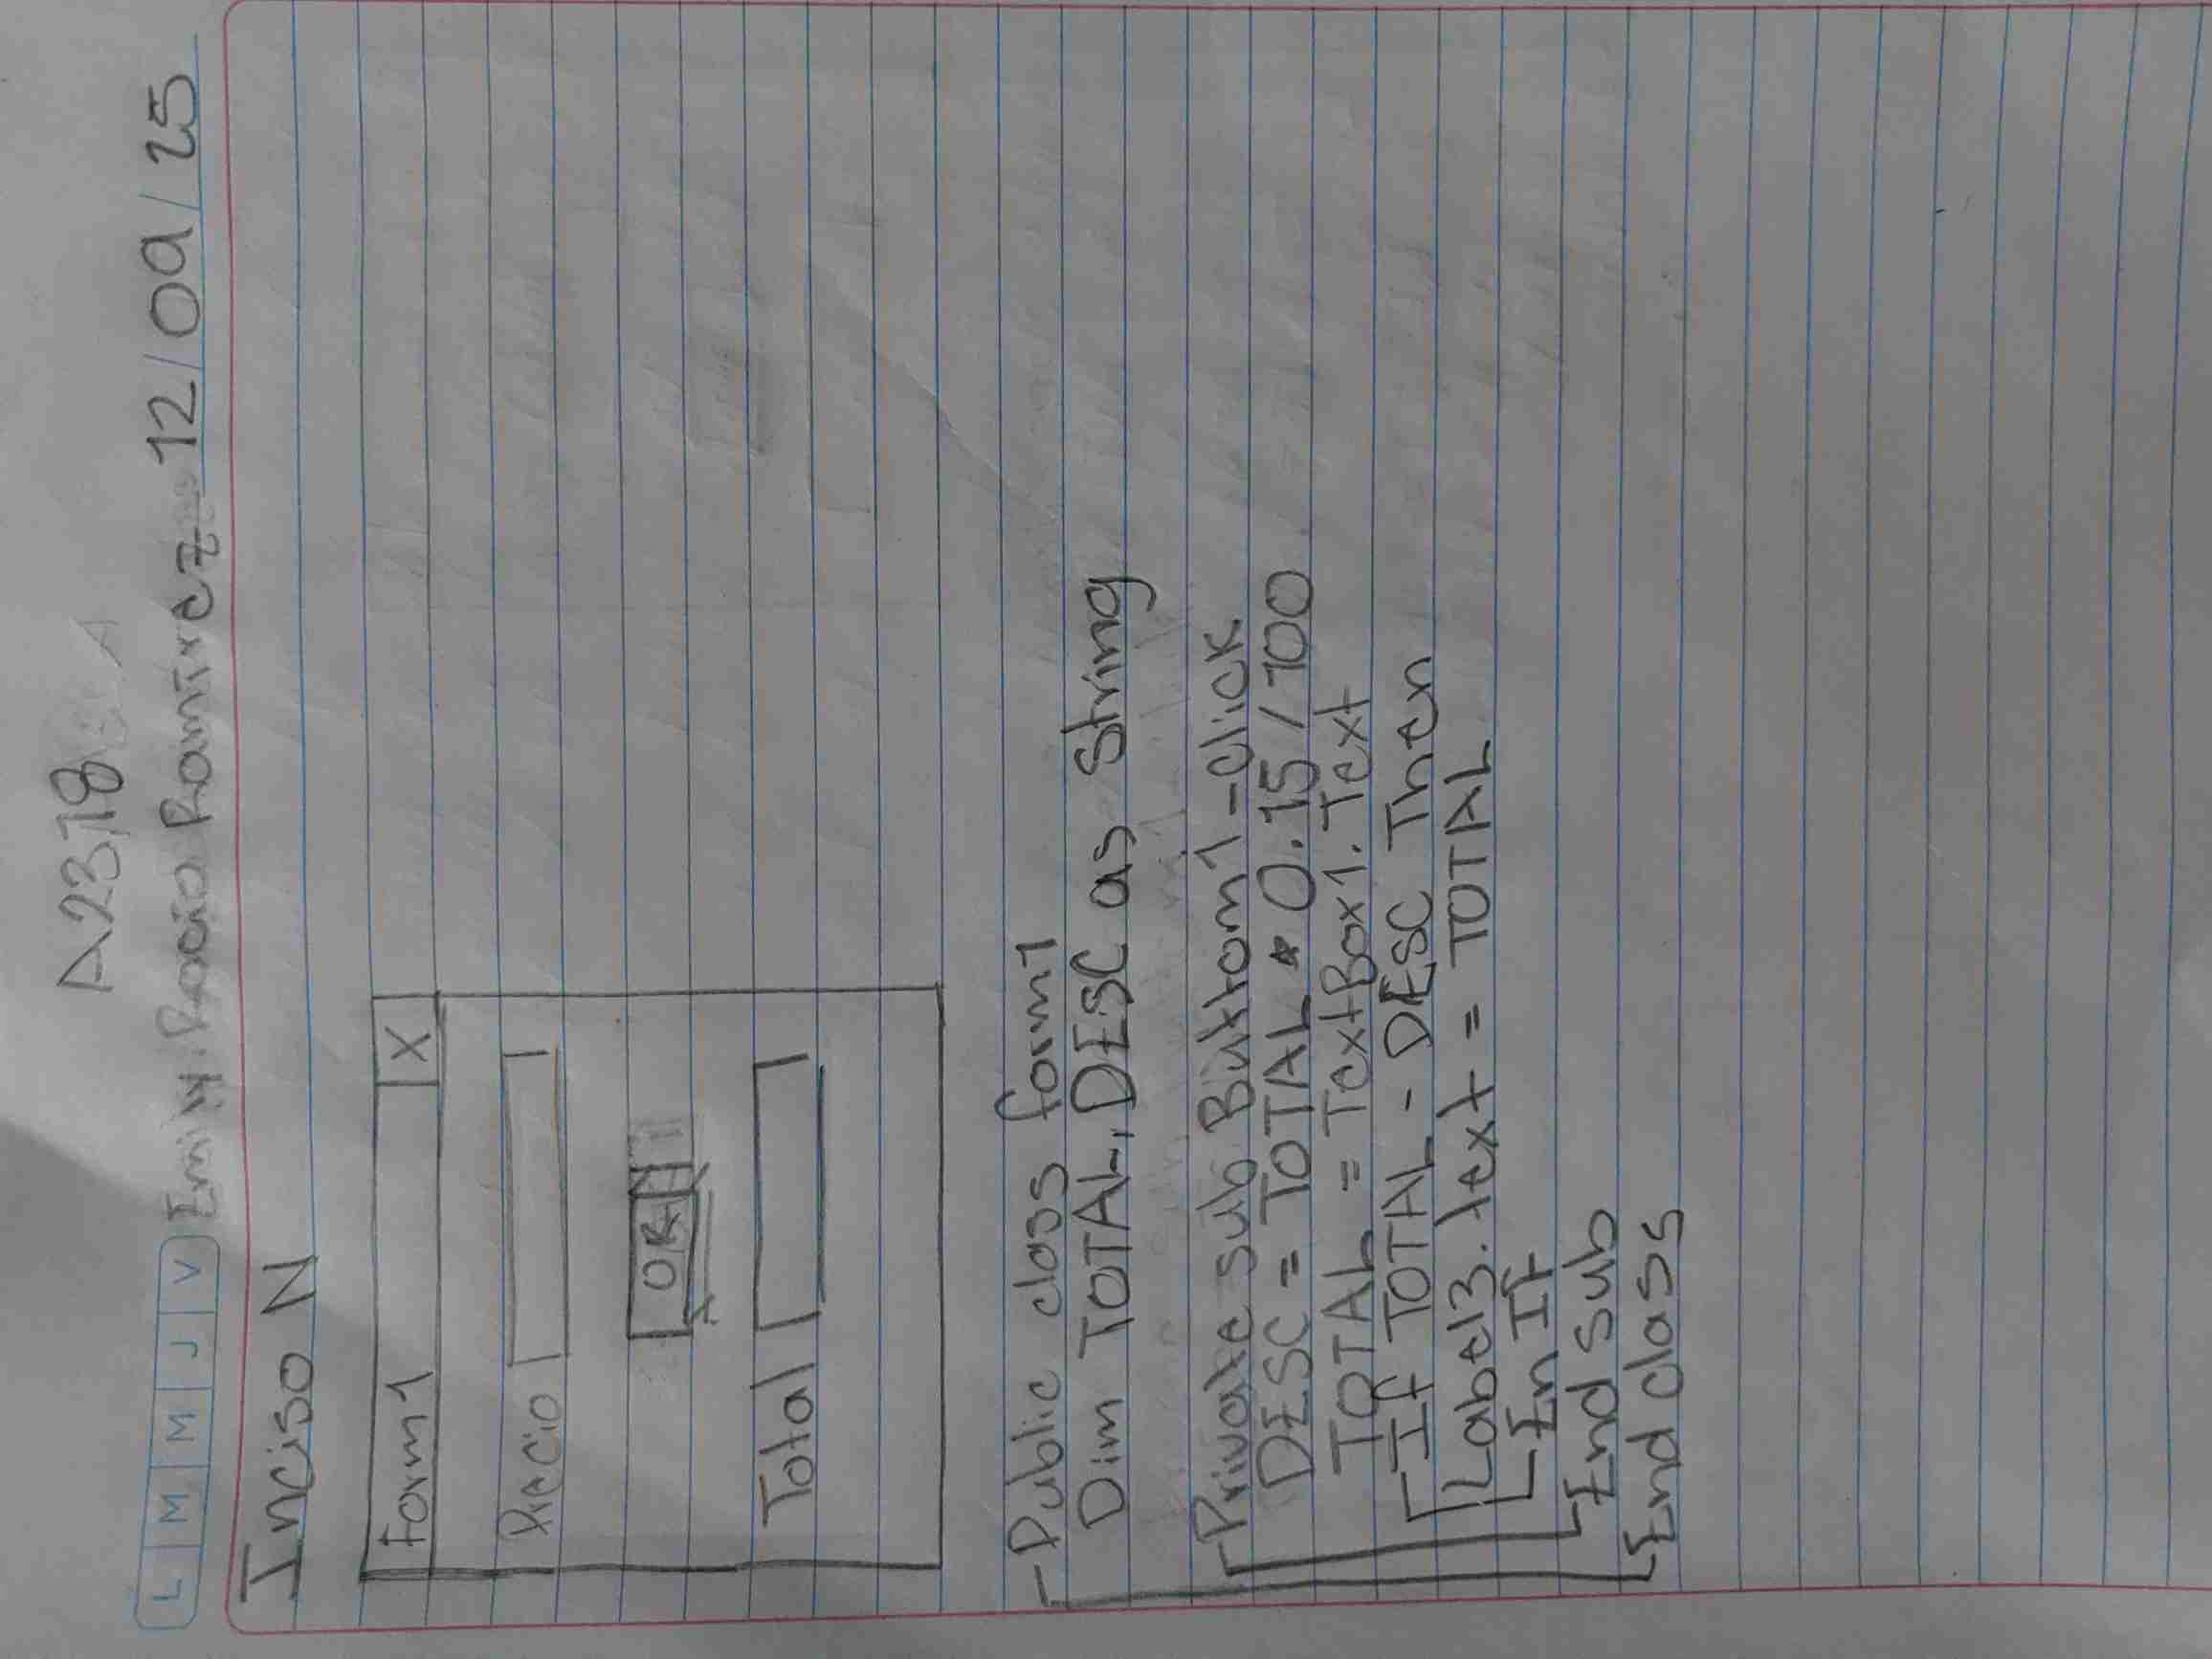 A2318
L M M J V Emily Rocio Ramirez 12/09/25
Inciso N
Form1 X
Precio
Total
Public class form1
Dim TOTAL, DESC as String
Private sub Buttom1-click
DESC = TOTAL * 0.15 / 100
TOTAL = TextBox1.Text
If TOTAL - DESC Then
Label3.text = TOTAL
En If
End Sub
End class